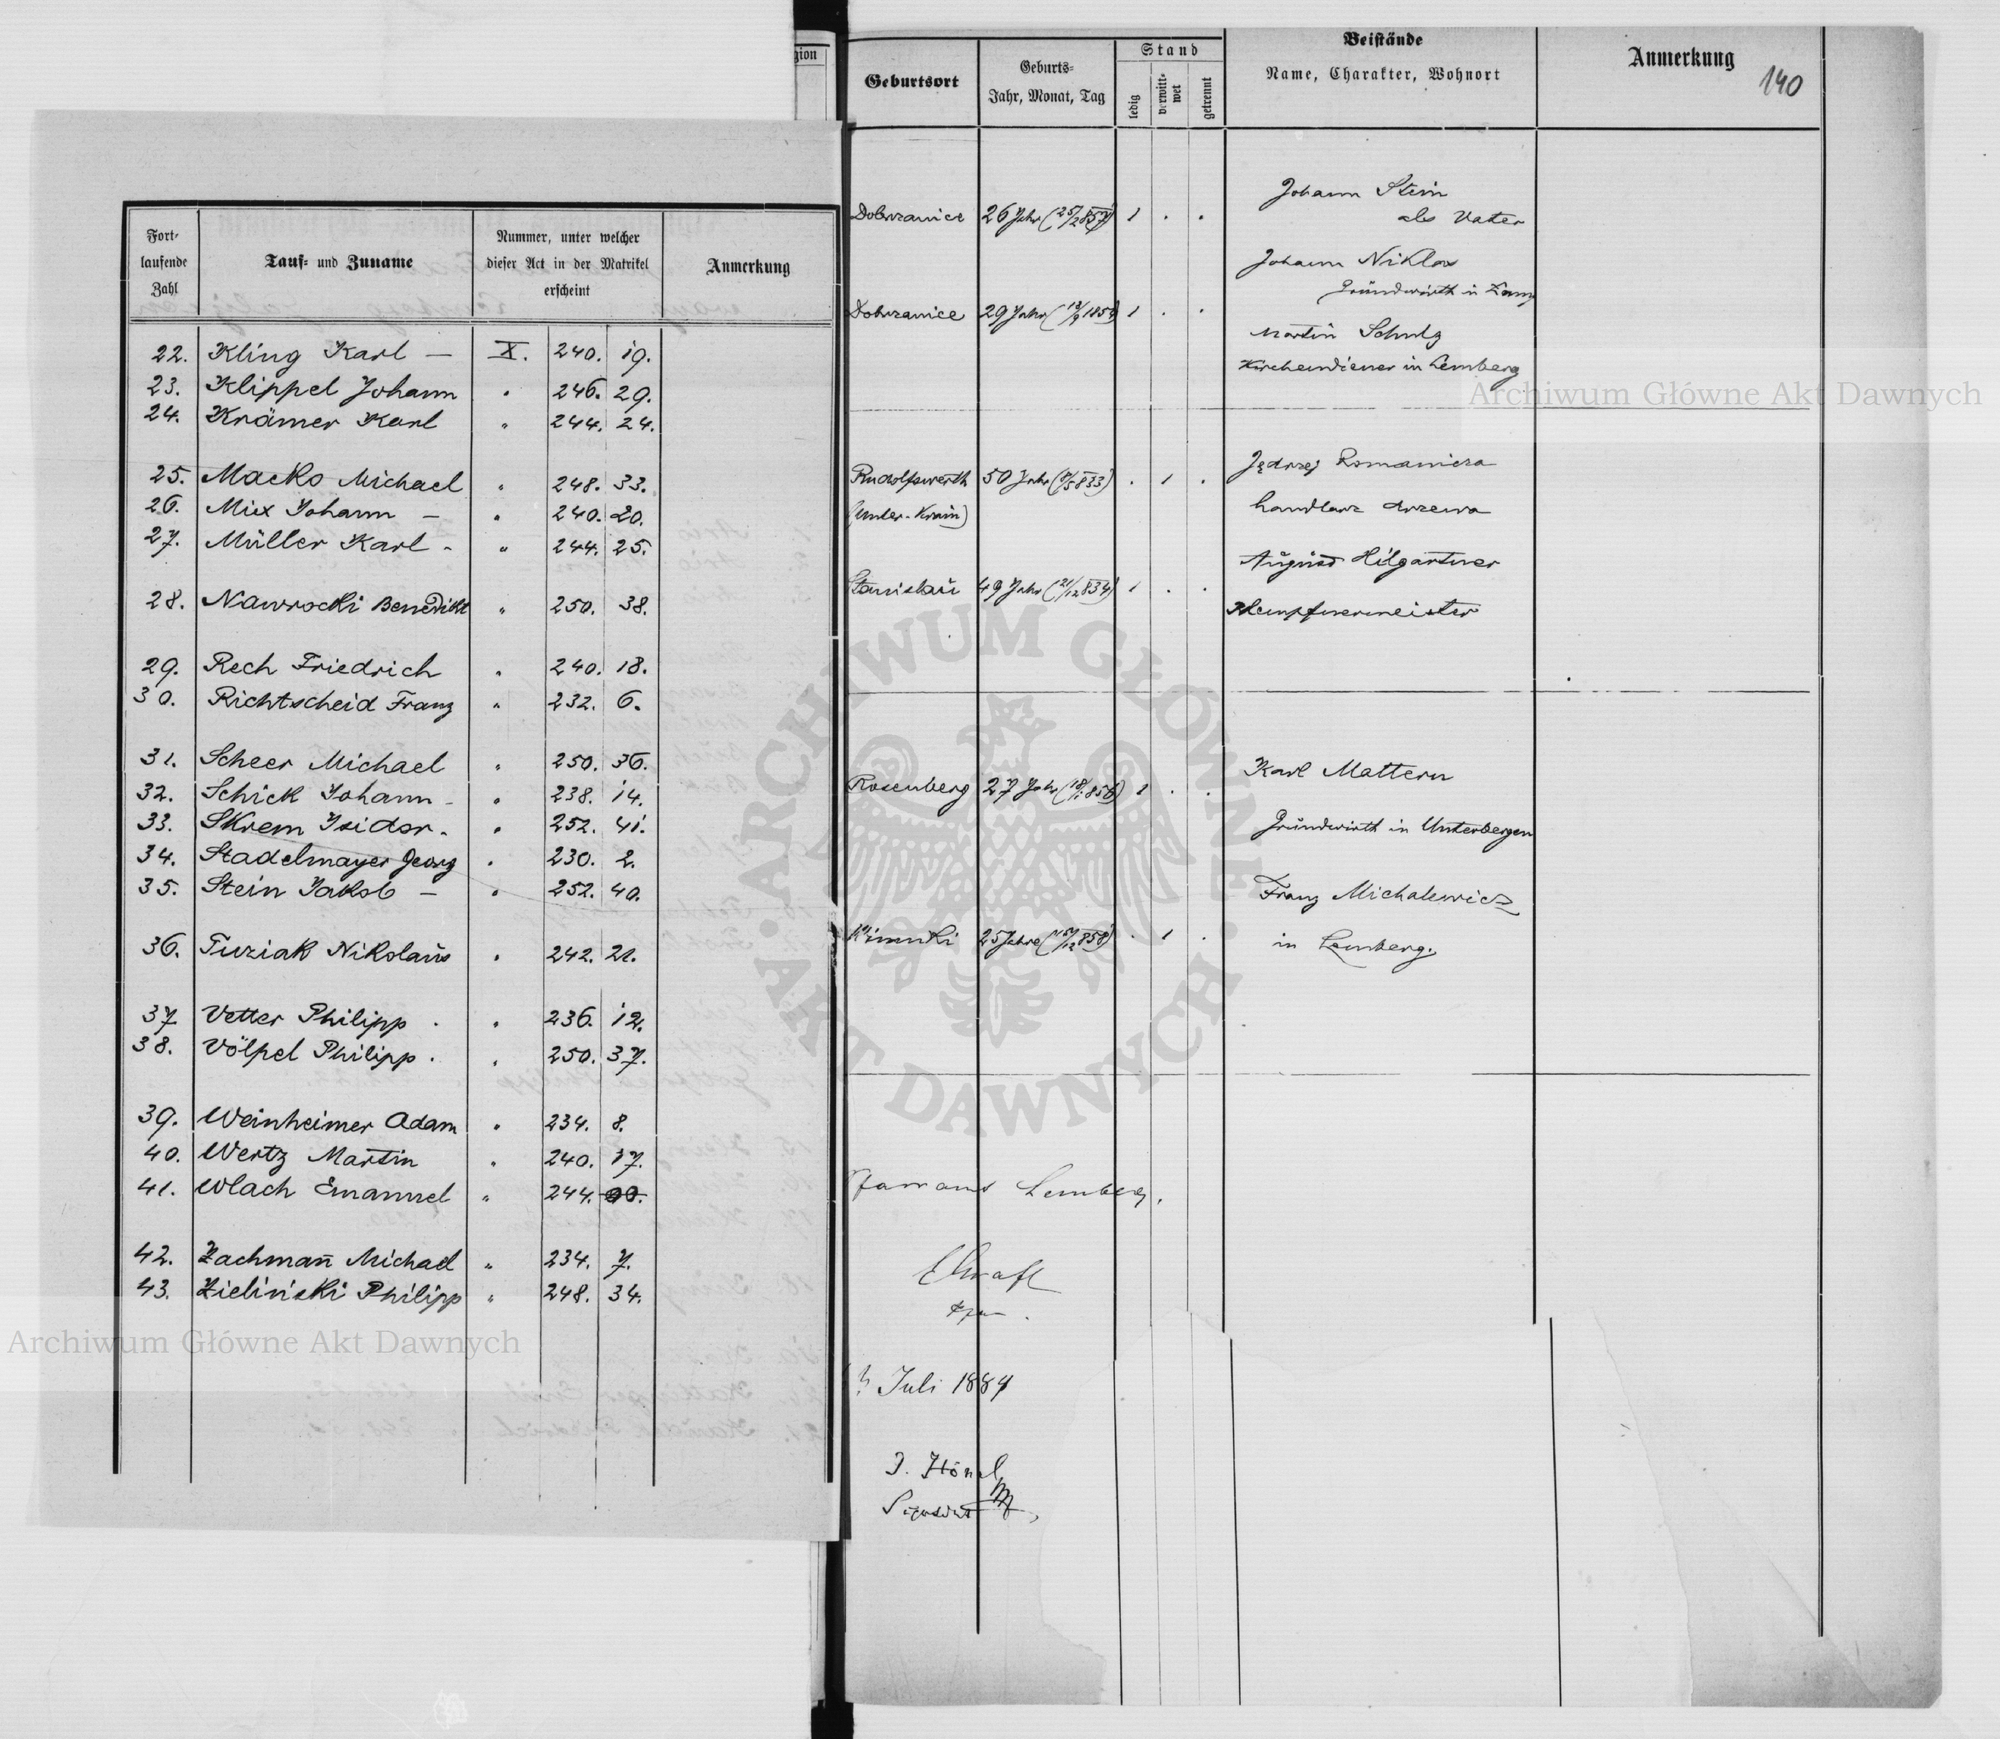 Fort-
laufende
Zahl
Tauf- und Zuname
Nummer, unter welcher
dieser Act in der Matrikel
erscheint
Anmerkung
22. Kling Karl — X. 240. 19.
23. Klippel Johann " 246. 29.
24. Krämer Karl " 244. 24.
25. Macko Michael " 248. 33.
26. Mix Johann — " 240. 20.
27. Müller Karl - " 244. 25.
28. Nawrocki Benedikt " 250. 38.
29. Rech Friedrich " 240. 18.
30. Richtscheid Franz " 232. 6.
31. Scheer Michael " 250. 36.
32. Schick Johann - " 238. 14.
33. Skrem Isidor. " 252. 41.
34. Stadelmayer Georg " 230. 2.
35. Stein Jakob — " 252. 40.
36. Tuziak Nikolaus " 242. 21.
37 Vetter Philipp . " 236. 12.
38. Völpel Philipp . " 250. 37.
39. Weinheimer Adam " 234. 8.
40. Wertz Martin " 240. 17.
41. Wlach Emanuel " 244.
42. Zachmañ Michael " 234. 7.
43. Zielinski Philipp " 248. 34.
gion
Geburtsort
Geburts-
Jahr, Monat, Tag
Stand
ledig
verwitt-
wet
getrennt
Beistände
Name, Charakter, Wohnort
Anmerkung
140
Johann Stein
als Vater
Dobrzanice 26 Jahr (25/2 857) 1 . .
Johann Niklas
Grundwirth in
Dobrzanice 29 Jahr 1 . .
Martin Schulz
Kirchendiener in Lemberg
Jędrzej Romanicza
Rudolfswerth 50 Jahr . 1 .
(Unter-Krain)
handlarz drzewa
August Hilgartner
Stanislau 49 Jahr (21/12 834) 1 . .
Klempfnermeister
Karl Mattern
Rosenberg 27 Jahr 1 . .
Grundwirth in Unterbergen
Franz Michalewicz
25 Jahre . 1 .
in Lemberg.
Pfarramt Lemberg.
Juli 1884
J. Hönel
Archiwum Główne Akt Dawnych
ARCHIWUM GŁÓWNE · AKT DAWNYCH ·
Archiwum Główne Akt Dawnych